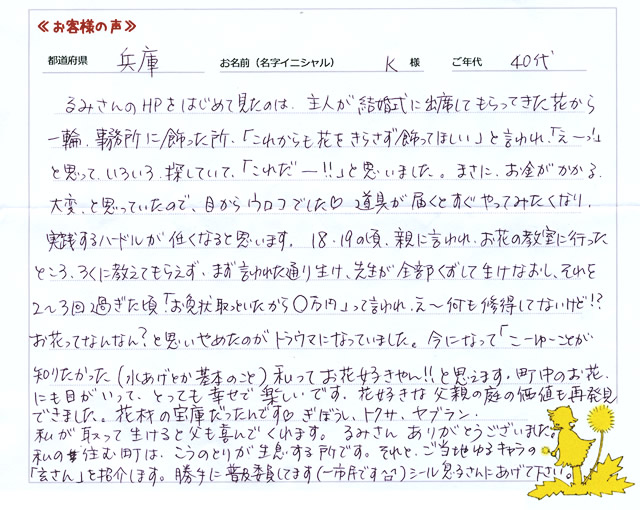 ≪お客様の声≫
都道府県 兵庫 お名前（名字イニシャル） K 様 ご年代 40代
るみさんのHPをはじめて見たのは、主人が結婚式に出席してもらってきた花から
一輪、事務所に飾った所、「これからも花をきらさず飾ってほしい」と言われ、「えーっ!」
と思って、いろいろ、探していて、「これだー!!」と思いました。まさに、お金がかかる、
大変、と思っていたので、目からウロコでした♡ 道具が届くとすぐやってみたくなり、
実践するハードルが低くなると思います。18・19の頃、親に言われ、お花の教室に行った
ところ、ろくに教えてもらえず、まず言われた通り生け、先生が全部くずして生けなおし、それを
2〜3回過ぎた頃「お免状取っといたから〇万円」って言われ、え〜何も修得してないけど!?
お花ってなんなん?と思いやめたのがトラウマになっていました。今になって「こーゆーことが
知りたかった(水あげとか基本のこと)私ってお花好きやん!!と思えます。町中のお花、
にも目がいって、とっても幸せで楽しいです。花好きな父親の庭の価値も再発見
できました。花材の宝庫だったんです♡ ぎぼうし、トクサ、ヤブラン・
私が取って生けると父も喜んでくれます。るみさん ありがとうございました。
私の住む町は、こうのとりが生息する所です。それと、ご当地ゆるキャラの
「玄さん」を紹介します。勝手に普及委員してます(一市民です^^)シール息子さんにあげて下さい。